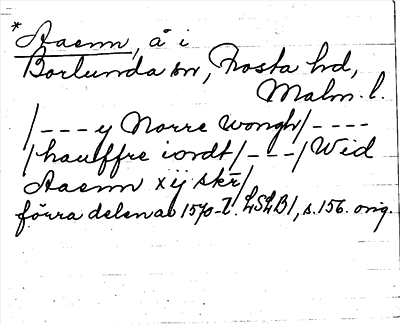 *Aaenn, å i
Borlunda sn, Frosta hd,
Malm. l.
/---y Norre wongh/----
/hauffre iordt/---/Wid
Aaenn xij skr̄/
förra delen av 1570-t. LSLB1, s. 156. orig.